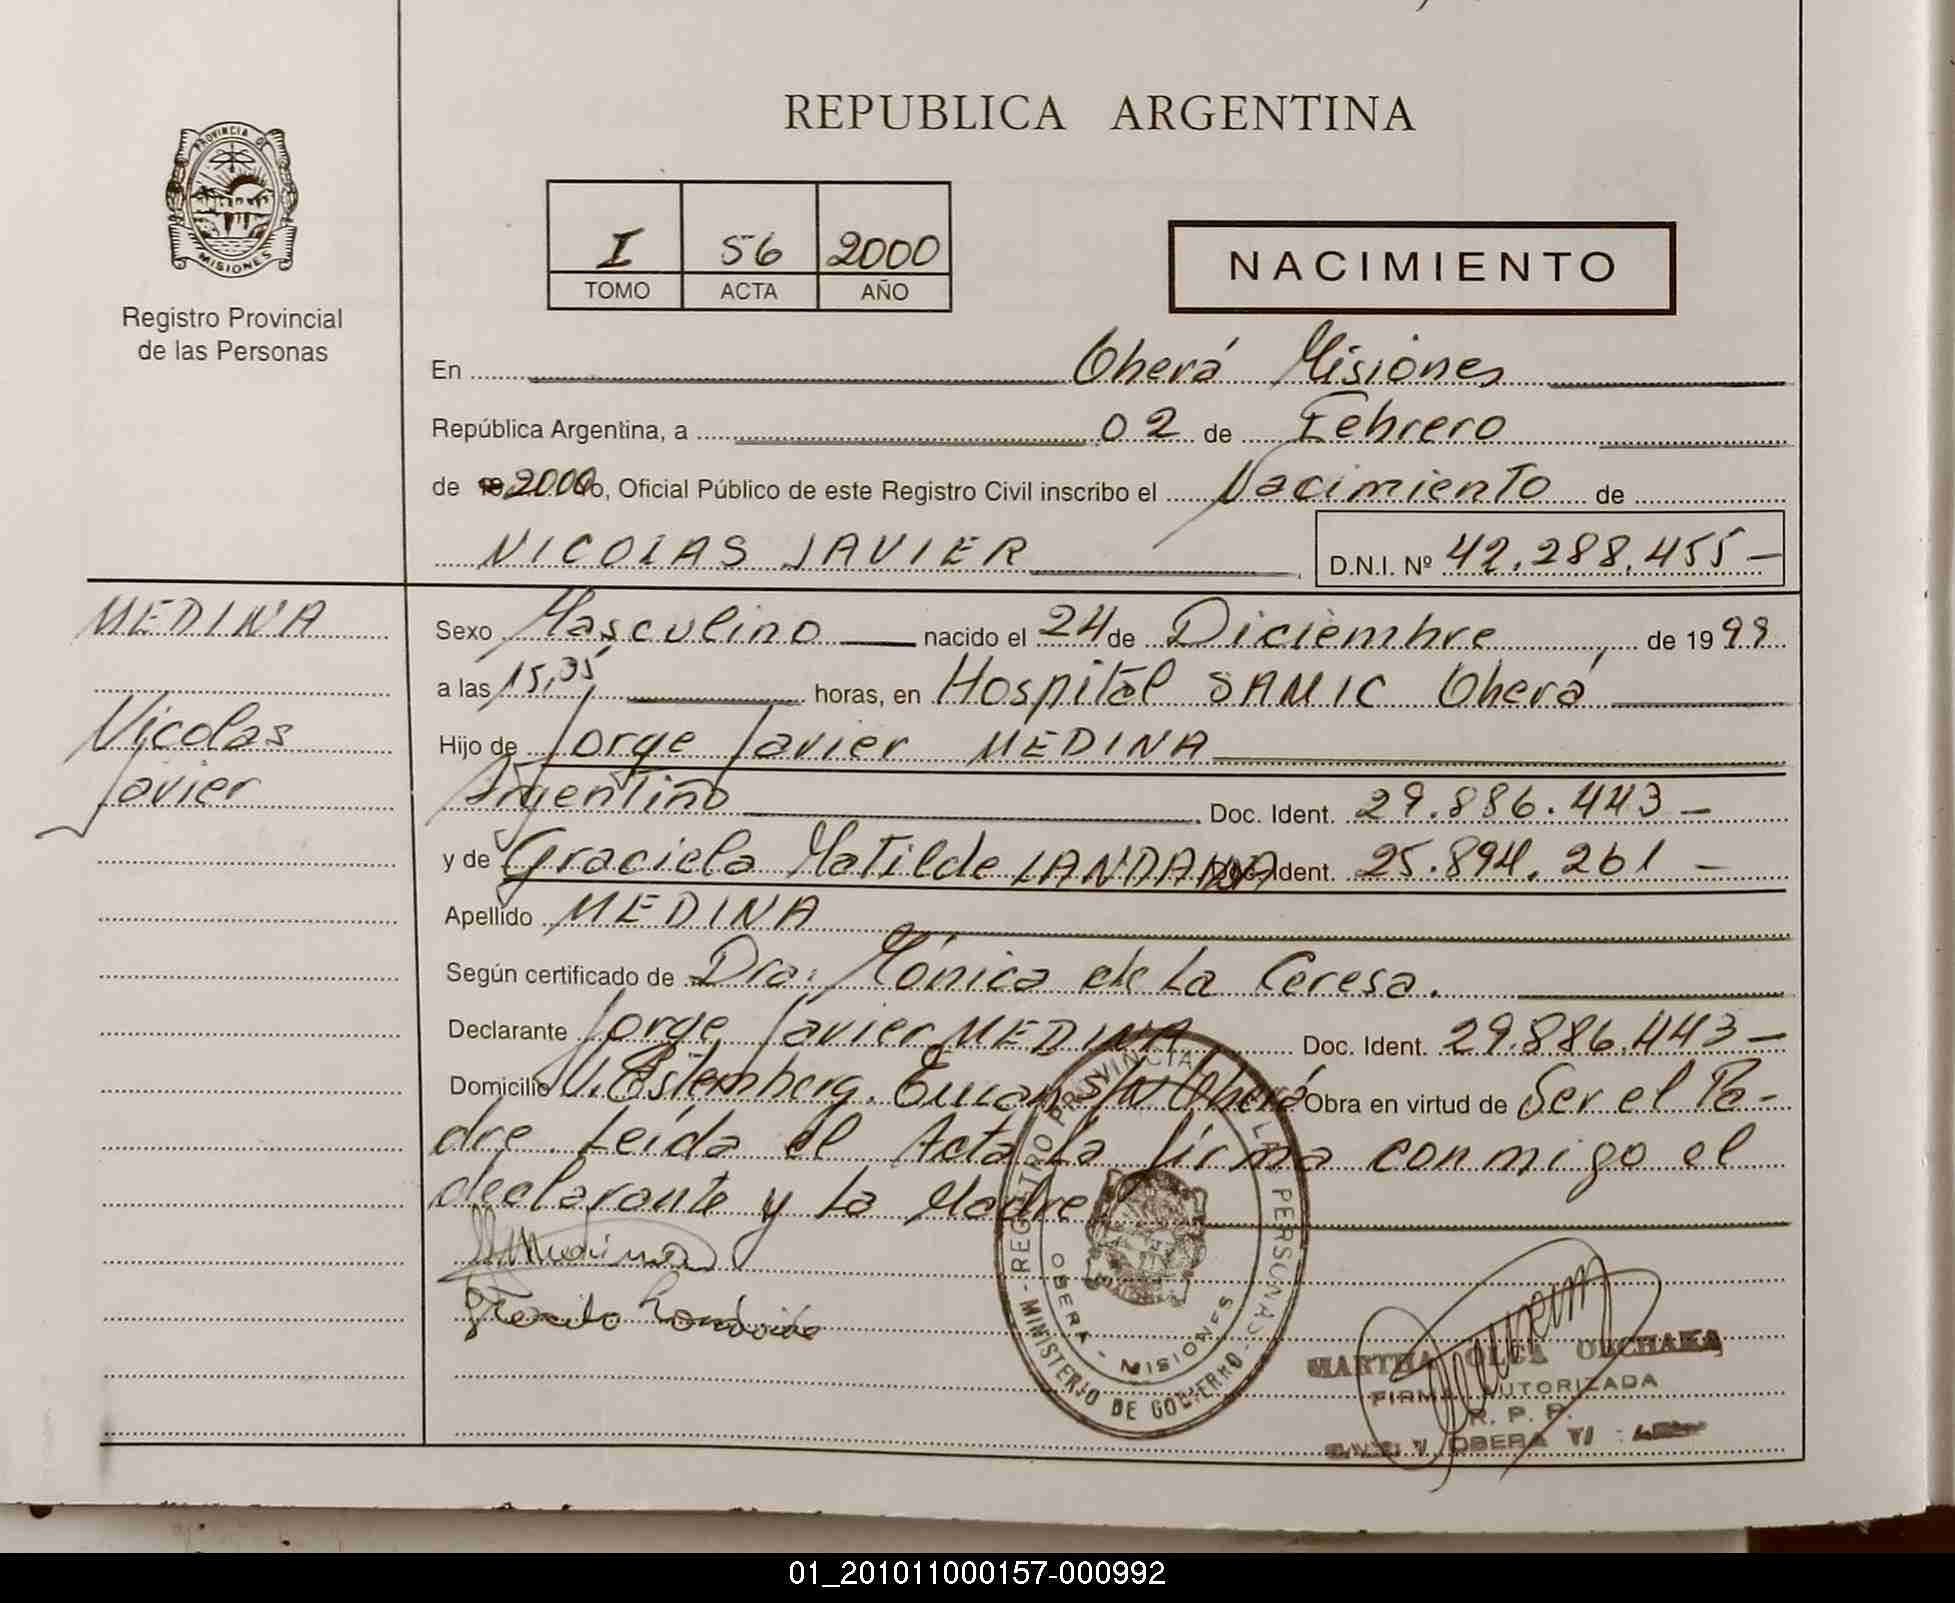 REPUBLICA ARGENTINA
PROVINCIA DE
MISIONES
Registro Provincial
de las Personas
I 56 2000
TOMO ACTA AÑO
NACIMIENTO
En Oberá Misiones
República Argentina, a 02 de Febrero
de 2000 o, Oficial Público de este Registro Civil inscribo el Nacimiento de
NICOLAS JAVIER D.N.I. Nº 42.288.455-
MEDINA
Nicolas
Javier
Sexo Masculino nacido el 24 de Diciembre de 1999
a las 15,35 horas, en Hospital SAMIC Oberá
Hijo de Jorge Javier MEDINA
Argentino Doc. Ident. 29.886.443-
y de Graciela Matilde Doc. Ident. 25.894.261-
Apellido MEDINA
Según certificado de Dra. Mónica de la Ceresa.
Declarante Jorge Javier MEDINA Doc. Ident. 29.886.443-
Domicilio V. S/N Oberá Obra en virtud de Ser el Pa-
dre. Leída el Acta la firma conmigo el
declarante y la Madre.
REGISTRO PROVINCIAL LAS PERSONAS
MINISTERIO DE GOBIERNO
OBERA - MISIONES
MARTHA OLGA
FIRMA AUTORIZADA
R. P. P.
OBERA
01_201011000157-000992